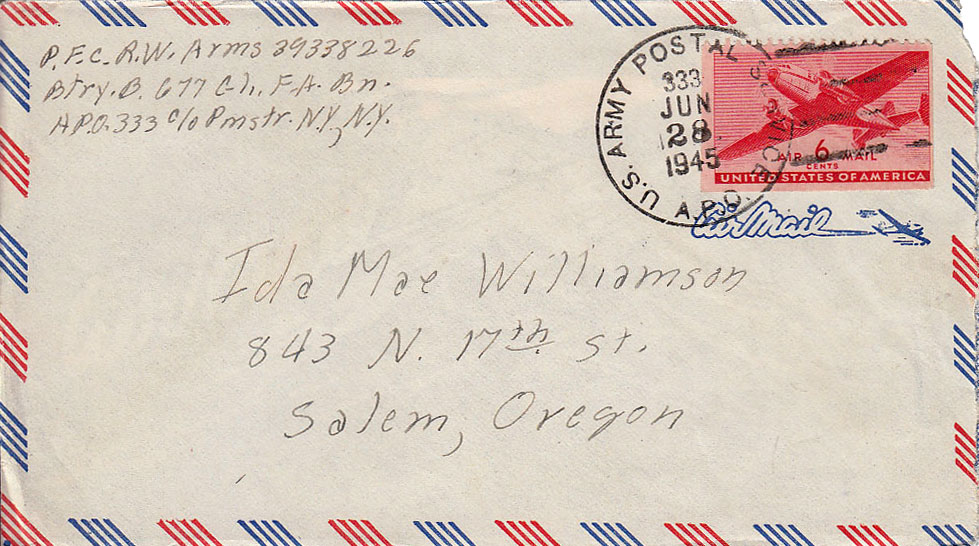 P.F.C. R.W. Arms 39338226
Btry. B. 677 Gli. F.A. Bn.
A.P.O. 333 c/o Pmstr. N.Y., N.Y.
U.S. ARMY POSTAL SERVICE
333
JUN
28
1945
A.P.O.
AIR 6 MAIL
CENTS
UNITED STATES OF AMERICA
Air Mail
Ida Mae Williamson
843 N. 17th. St.
Salem, Oregon